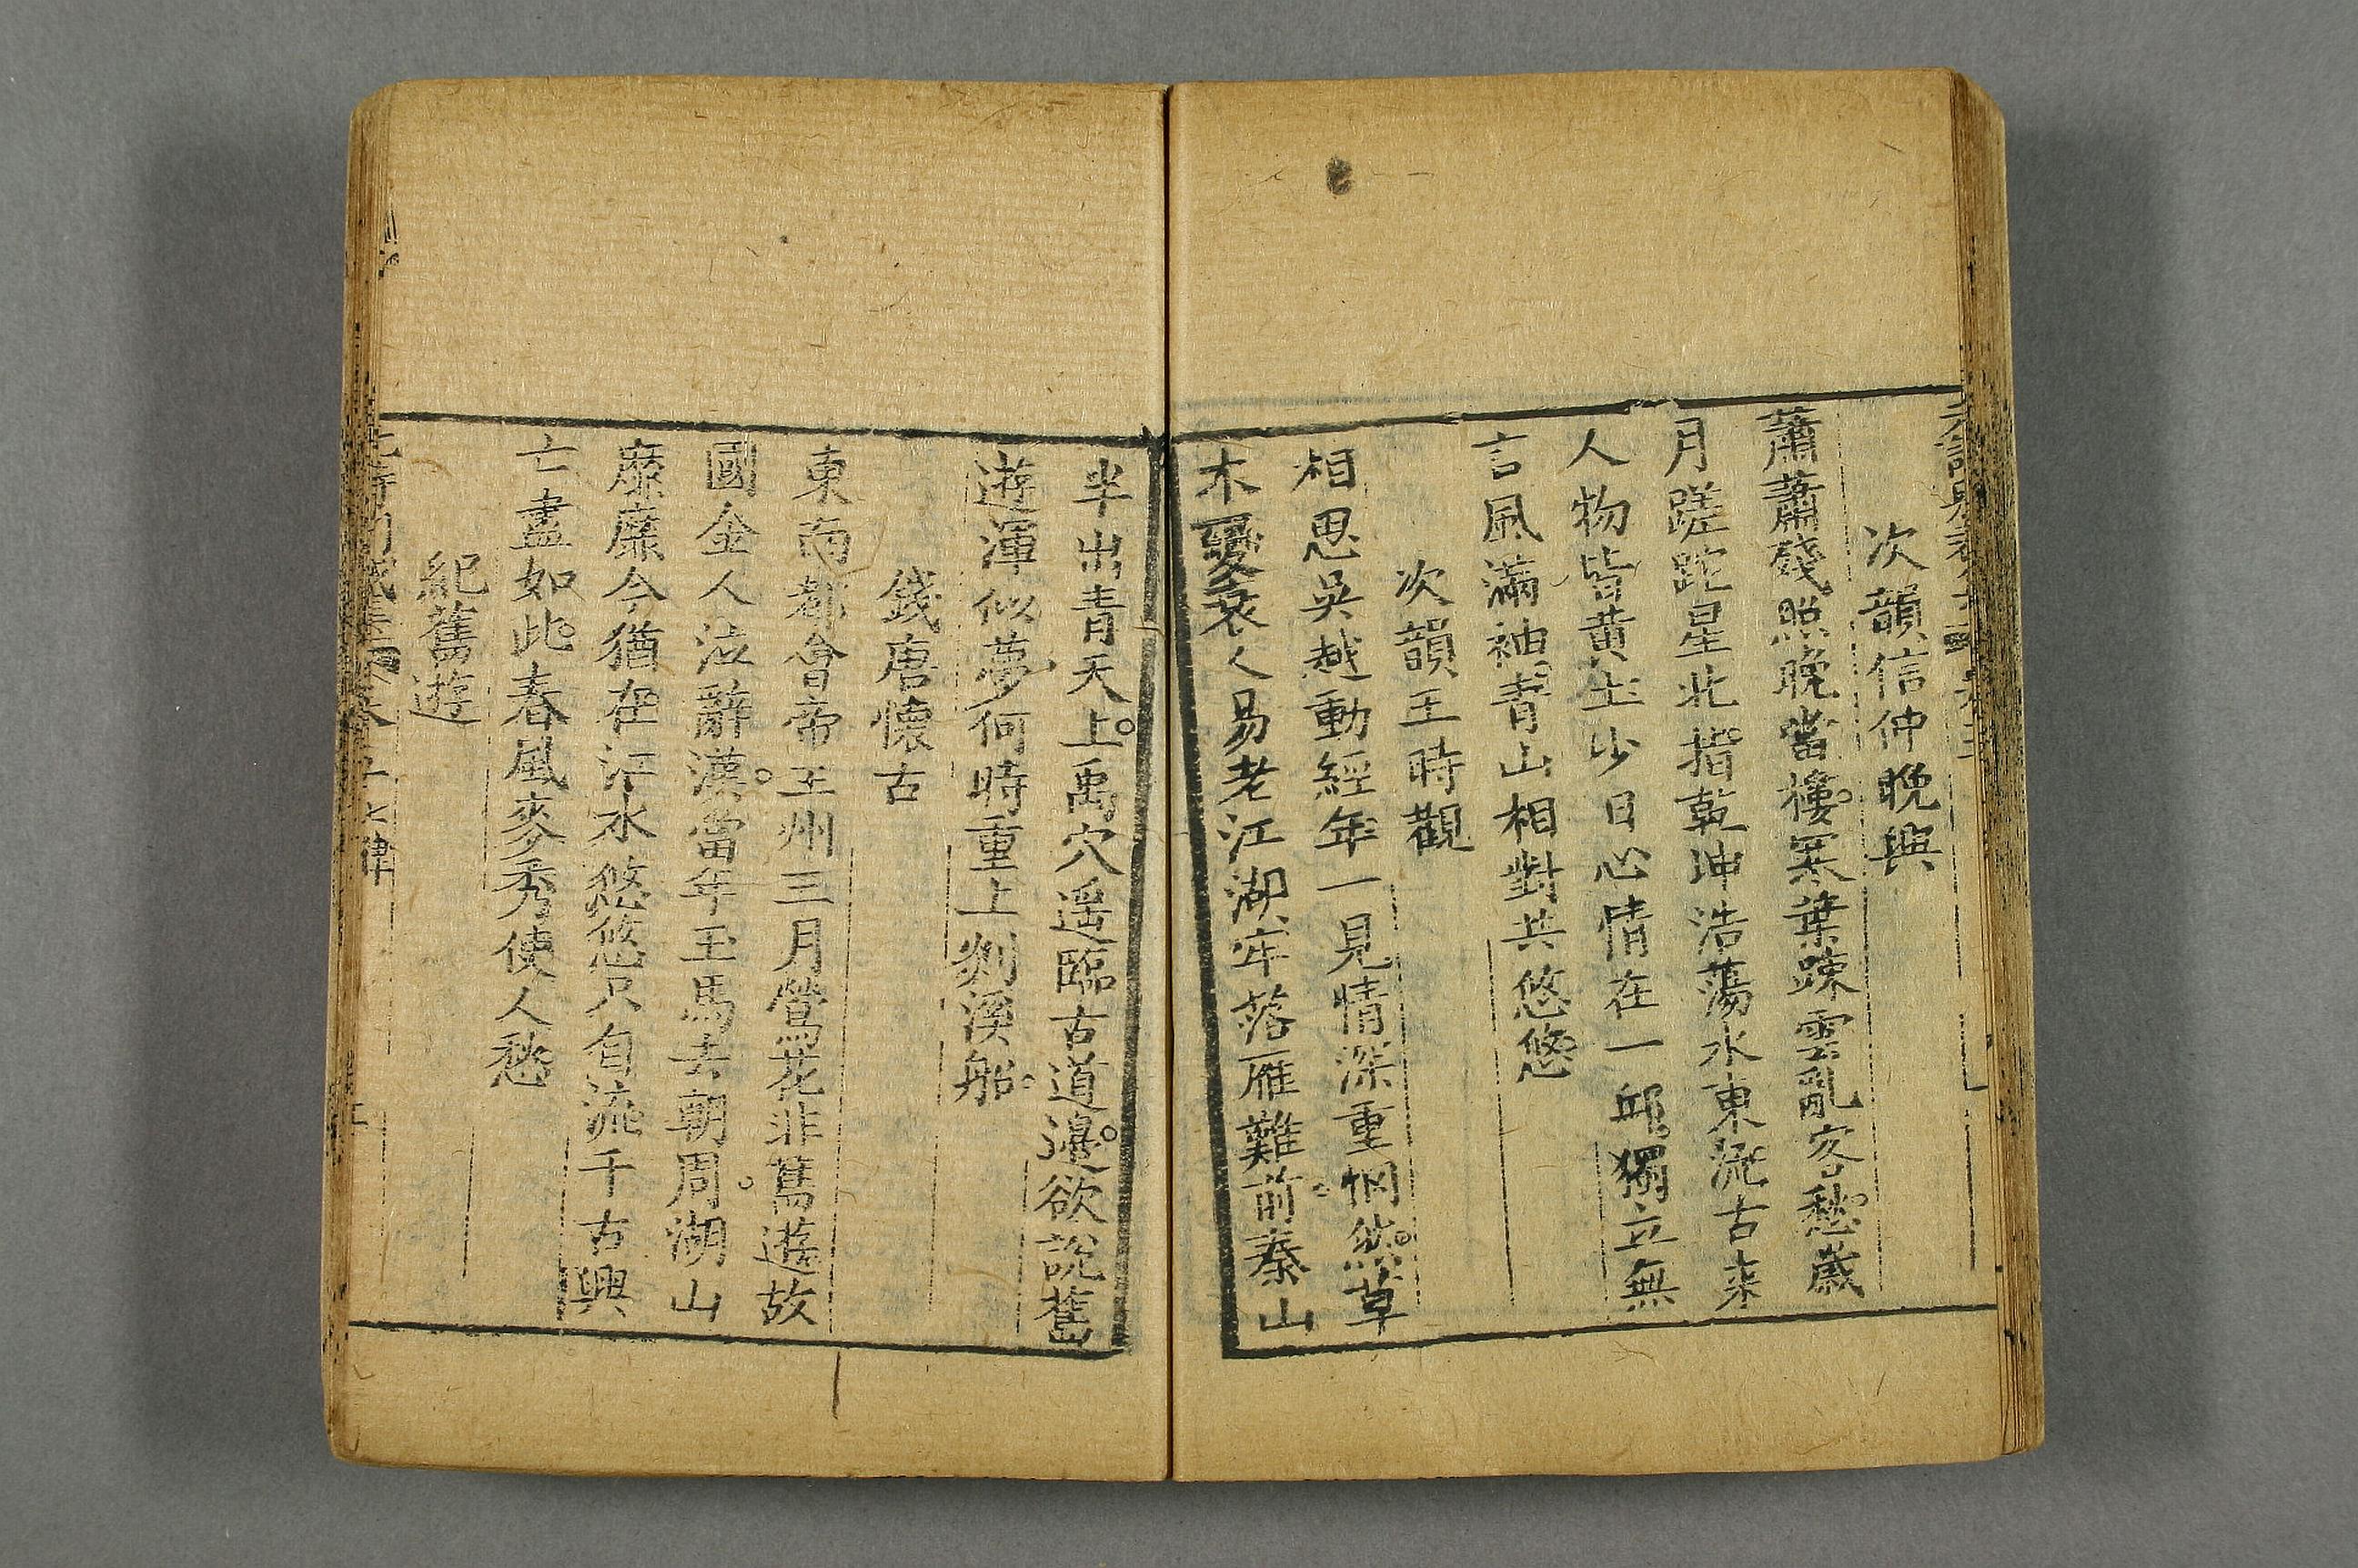 次韻信仲晚興
蕭蕭殘照晚當樓寒葉疎雲亂客愁歲
月蹉跎星北指乾坤浩蕩水東流古來
人物皆黃土少日心情在一邱獨立無
言風滿袖青山相對共悠悠
次韻王時觀
相思吳越動經年一見情深重惘然草
木變衰人易老江湖牢落雁難前秦山
半出青天上禹穴遥臨古道邊欲說舊
遊渾似夢何時重上剡溪船
錢唐懷古
東南都會帝王州三月鶯花非舊遊故
國金人泣辭漢當年玉馬去朝周湖山
靡靡今猶在江水悠悠只自流千古興
亡盡如此春風麥秀使人愁
紀舊遊
七律